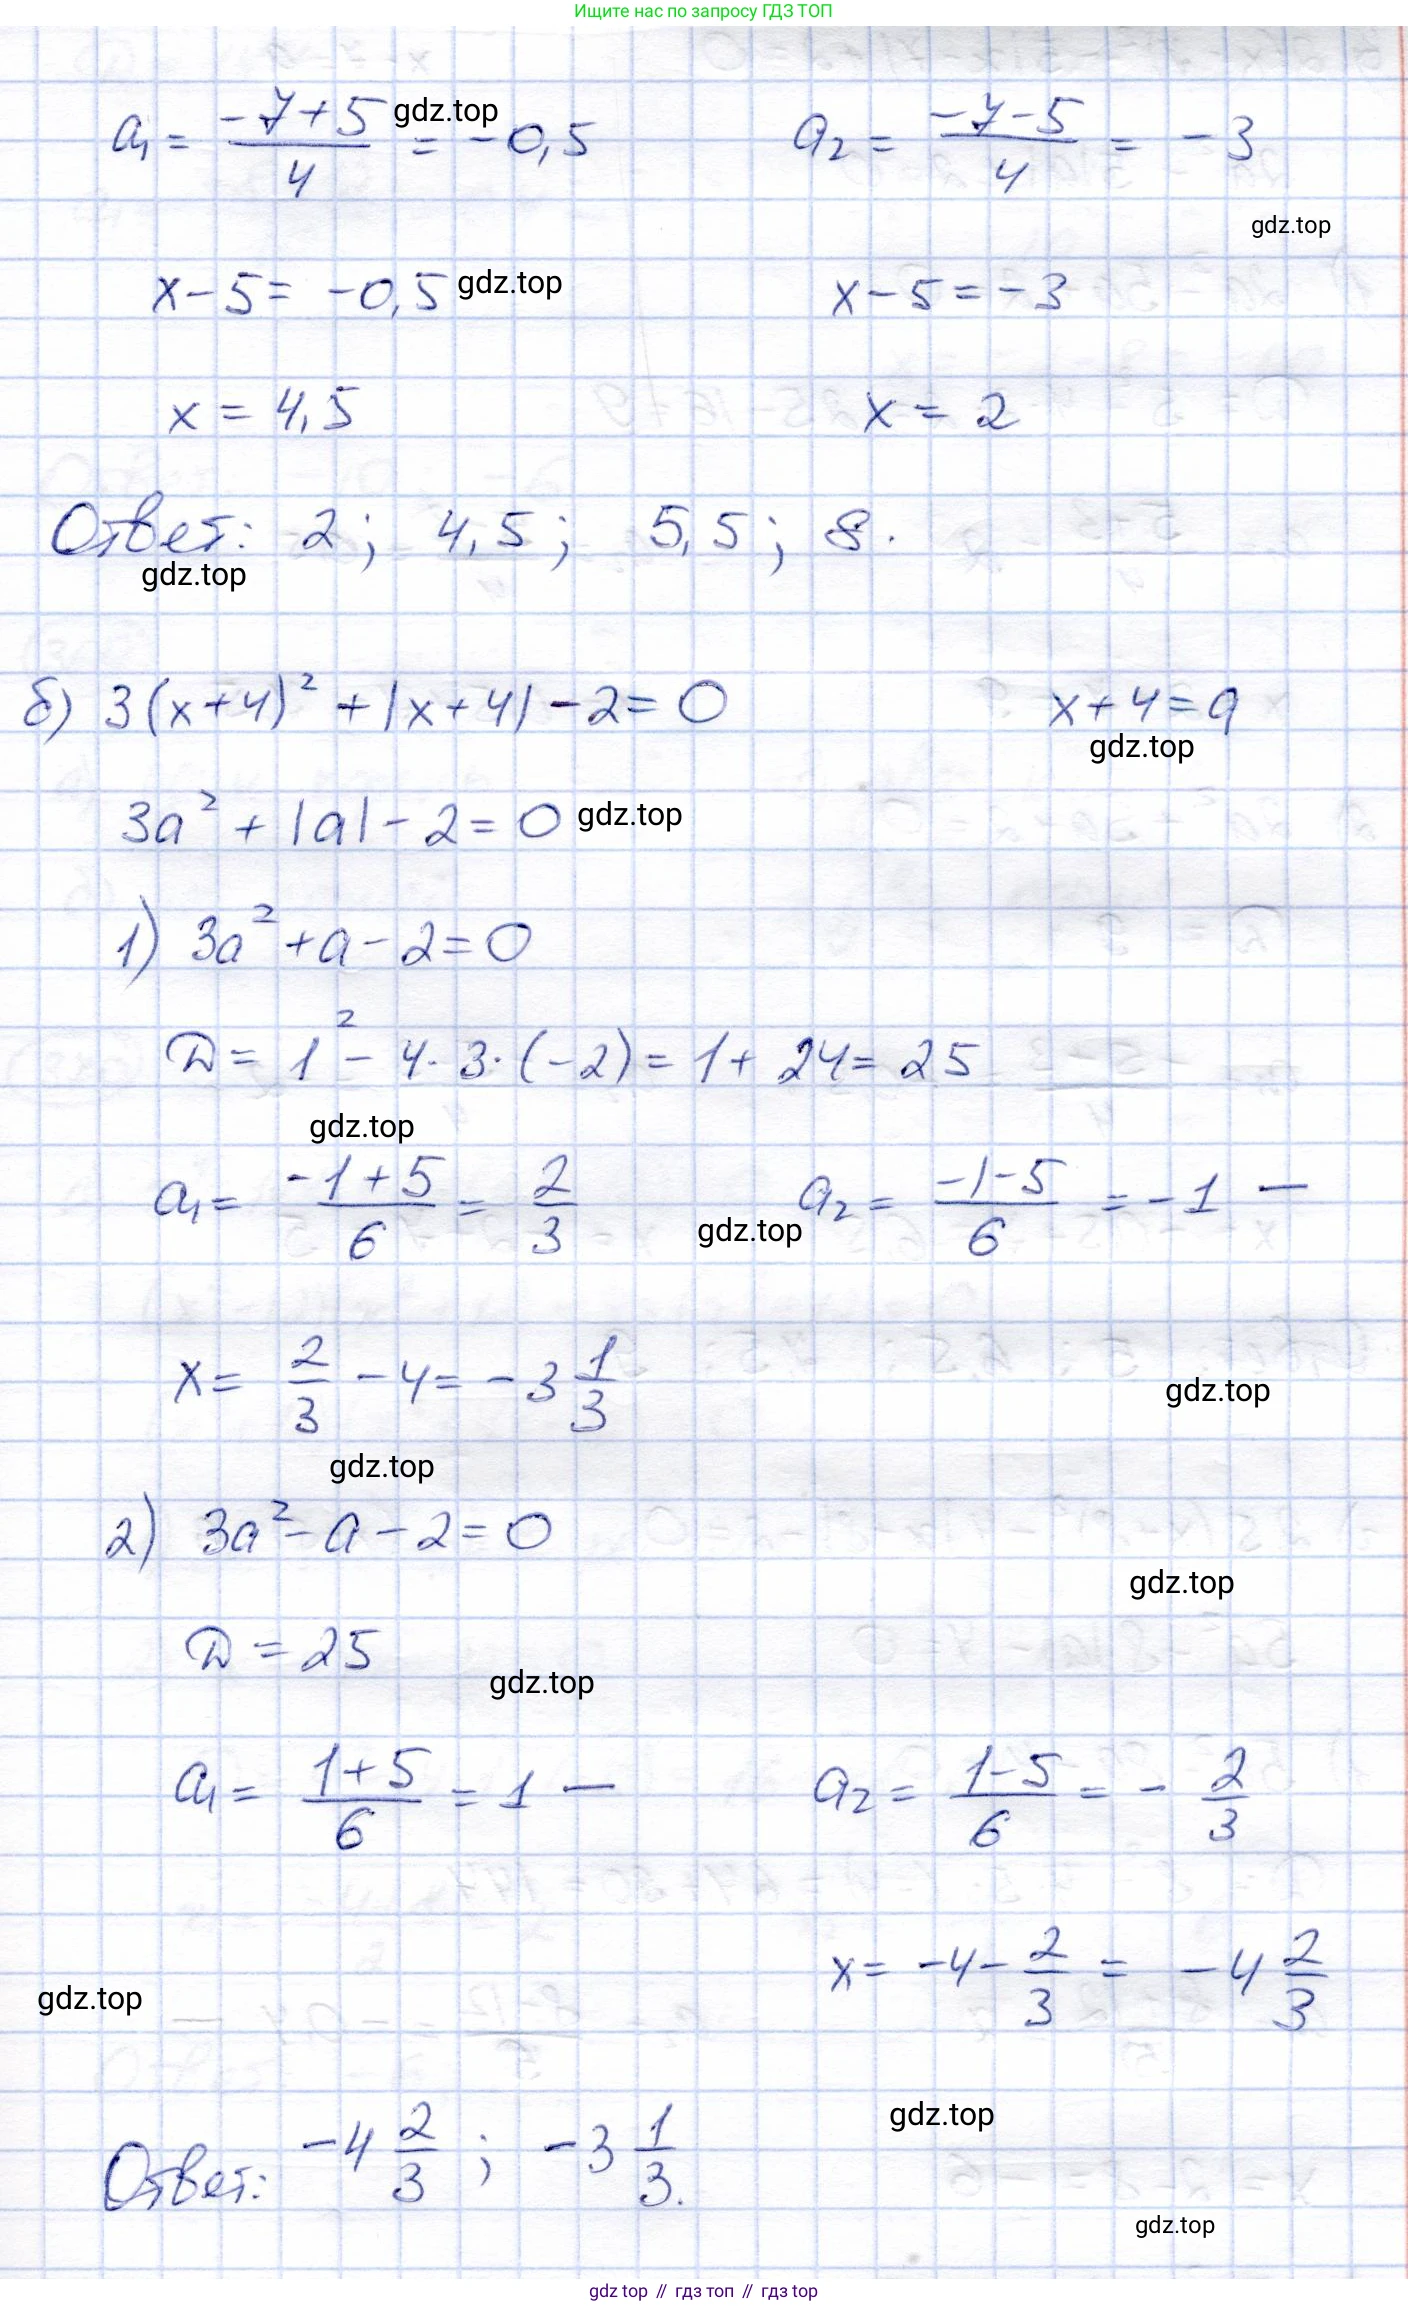 Ищите нас по запросу ГДЗ ТОП
a₁ = (-7+5)/4 = -0,5 gdz.top a₂ = (-7-5)/4 = -3
gdz.top
x-5 = -0,5 gdz.top x-5 = -3
x = 4,5 x = 2
Ответ: 2; 4,5; 5,5; 8.
gdz.top
б) 3(x+4)² + |x+4| - 2 = 0 x+4 = a
gdz.top
3a² + |a| - 2 = 0 gdz.top
1) 3a² + a - 2 = 0
D = 1² - 4·3·(-2) = 1 + 24 = 25
gdz.top
a₁ = (-1+5)/6 = 2/3 gdz.top a₂ = (-1-5)/6 = -1 —
x = 2/3 - 4 = -3 1/3
gdz.top
gdz.top
2) 3a² - a - 2 = 0
gdz.top
D = 25
gdz.top
a₁ = (1+5)/6 = 1 — a₂ = (1-5)/6 = - 2/3
x = -4 - 2/3 = -4 2/3
gdz.top
gdz.top
Ответ: -4 2/3; -3 1/3.
gdz.top
gdz top // гдз топ // гдз top